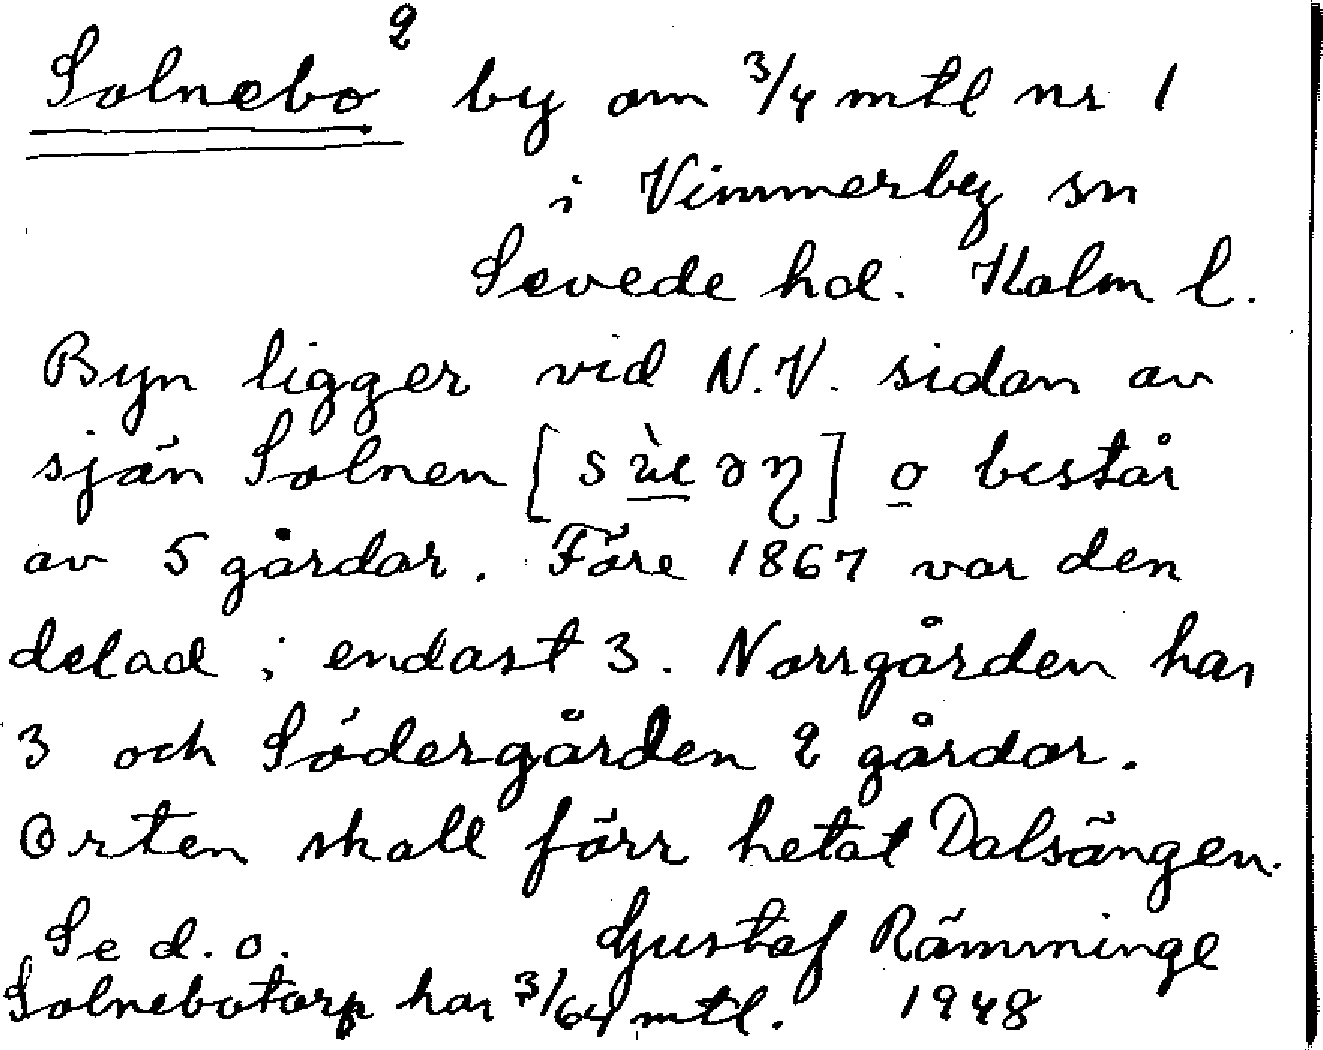 Solnebo 2 by om 3/4 mtl nr 1
i Vimmerby sn
Sevede hd. Kalm l.
Byn ligger vid N.V. sidan av
sjön Solnen [ ] o består
av 5 gårdar. Före 1867 var den
delad i endast 3. Norrgården har
3 och Södergården 2 gårdar.
Orten skall förr hetat Dalsängen.
Se d. o. Gustaf Rämminge
Solnebotorp har 3/64 mtl. 1948